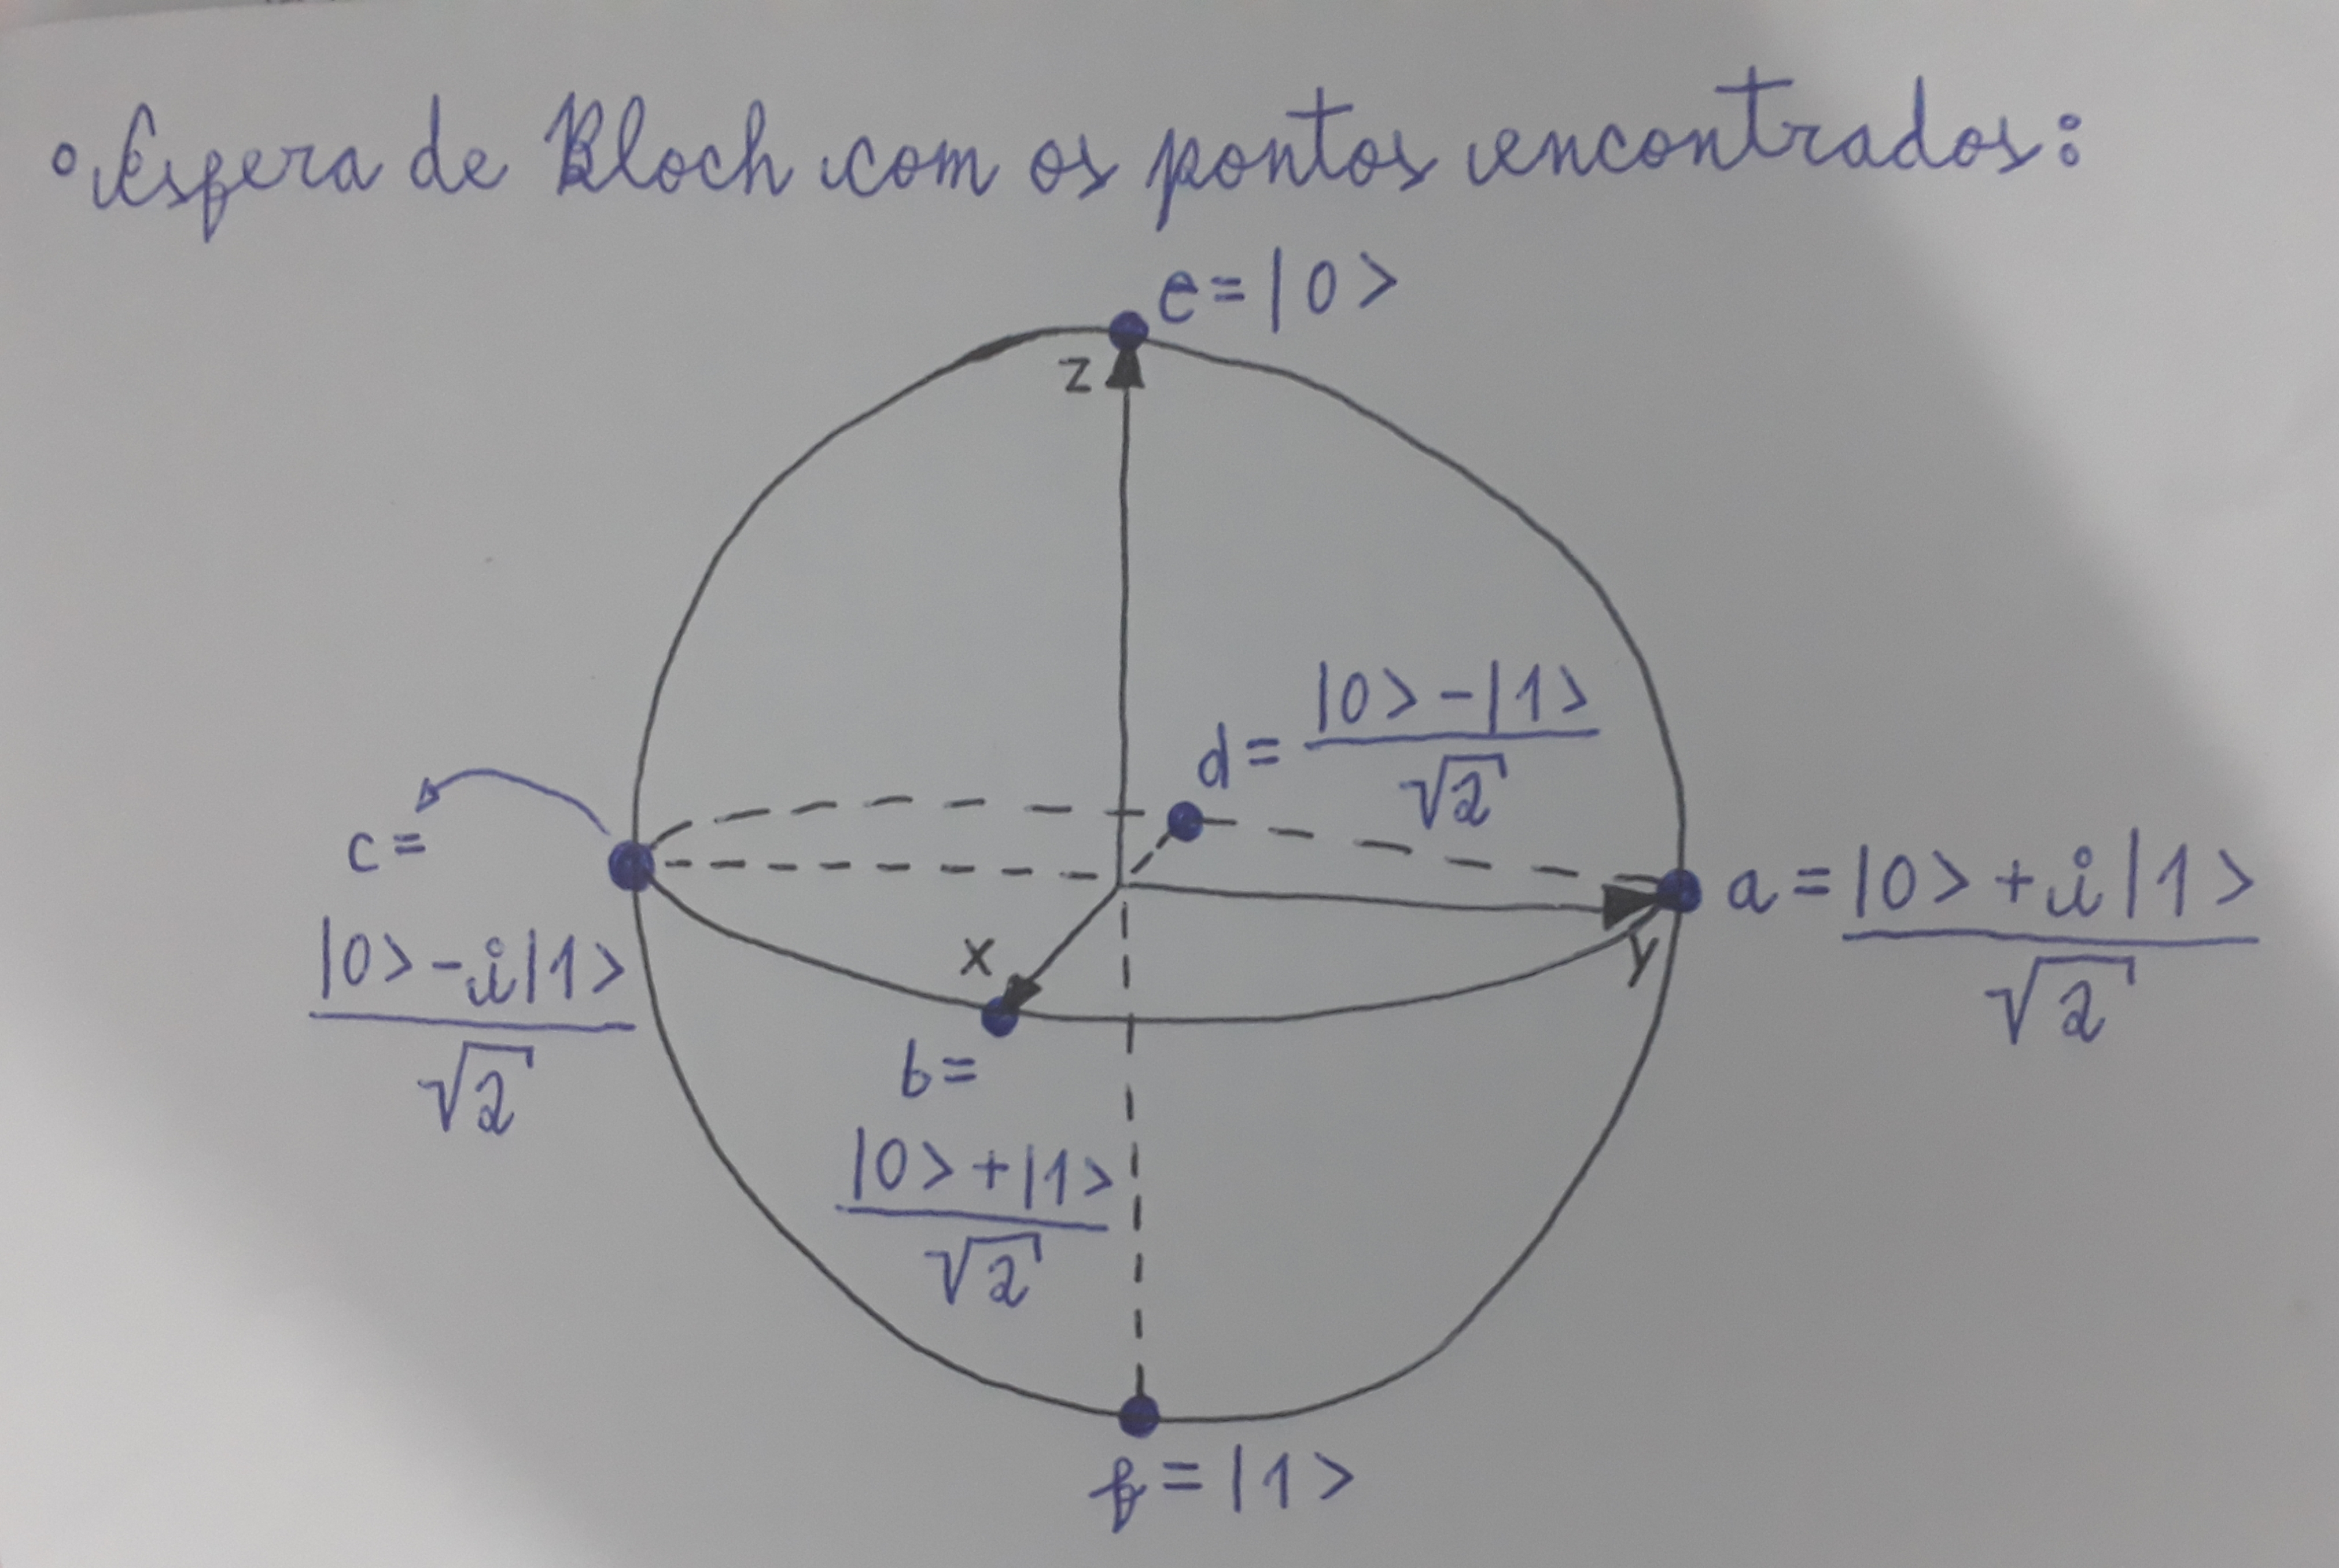 • Esfera de Bloch com os pontos encontrados:
e = |0>
z
d = |0> - |1>
√2
c =
|0> - i|1>
√2
a = |0> + i|1>
√2
x
y
b =
|0> + |1>
√2
f = |1>